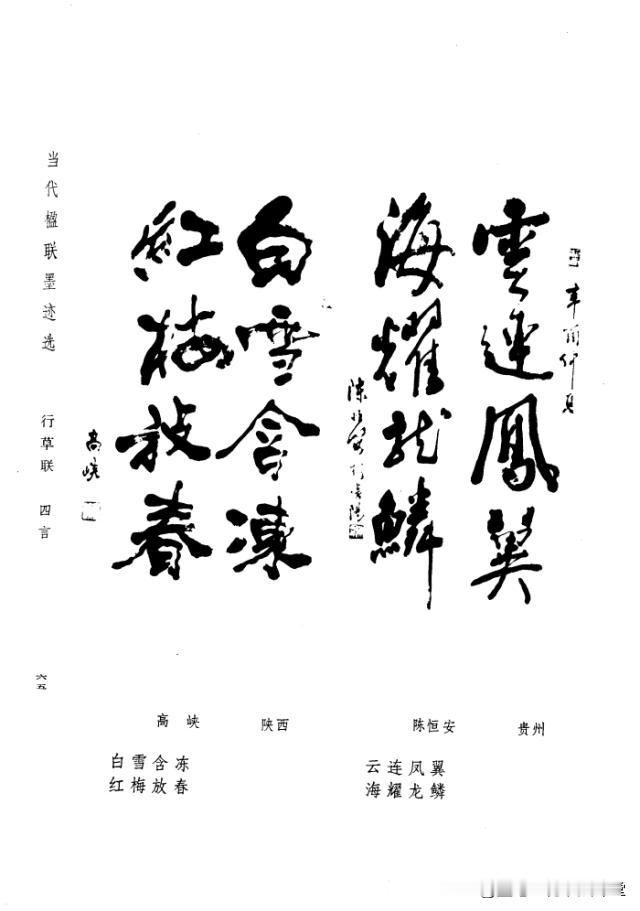 雲連鳳翼
海耀龙鱗
白雪含凍
紅梅放春
高峡
当代楹联墨迹选 行草联 四言
六五
贵州 陈恒安
云连凤翼
海耀龙鳞
陕西 高峡
白雪含冻
红梅放春